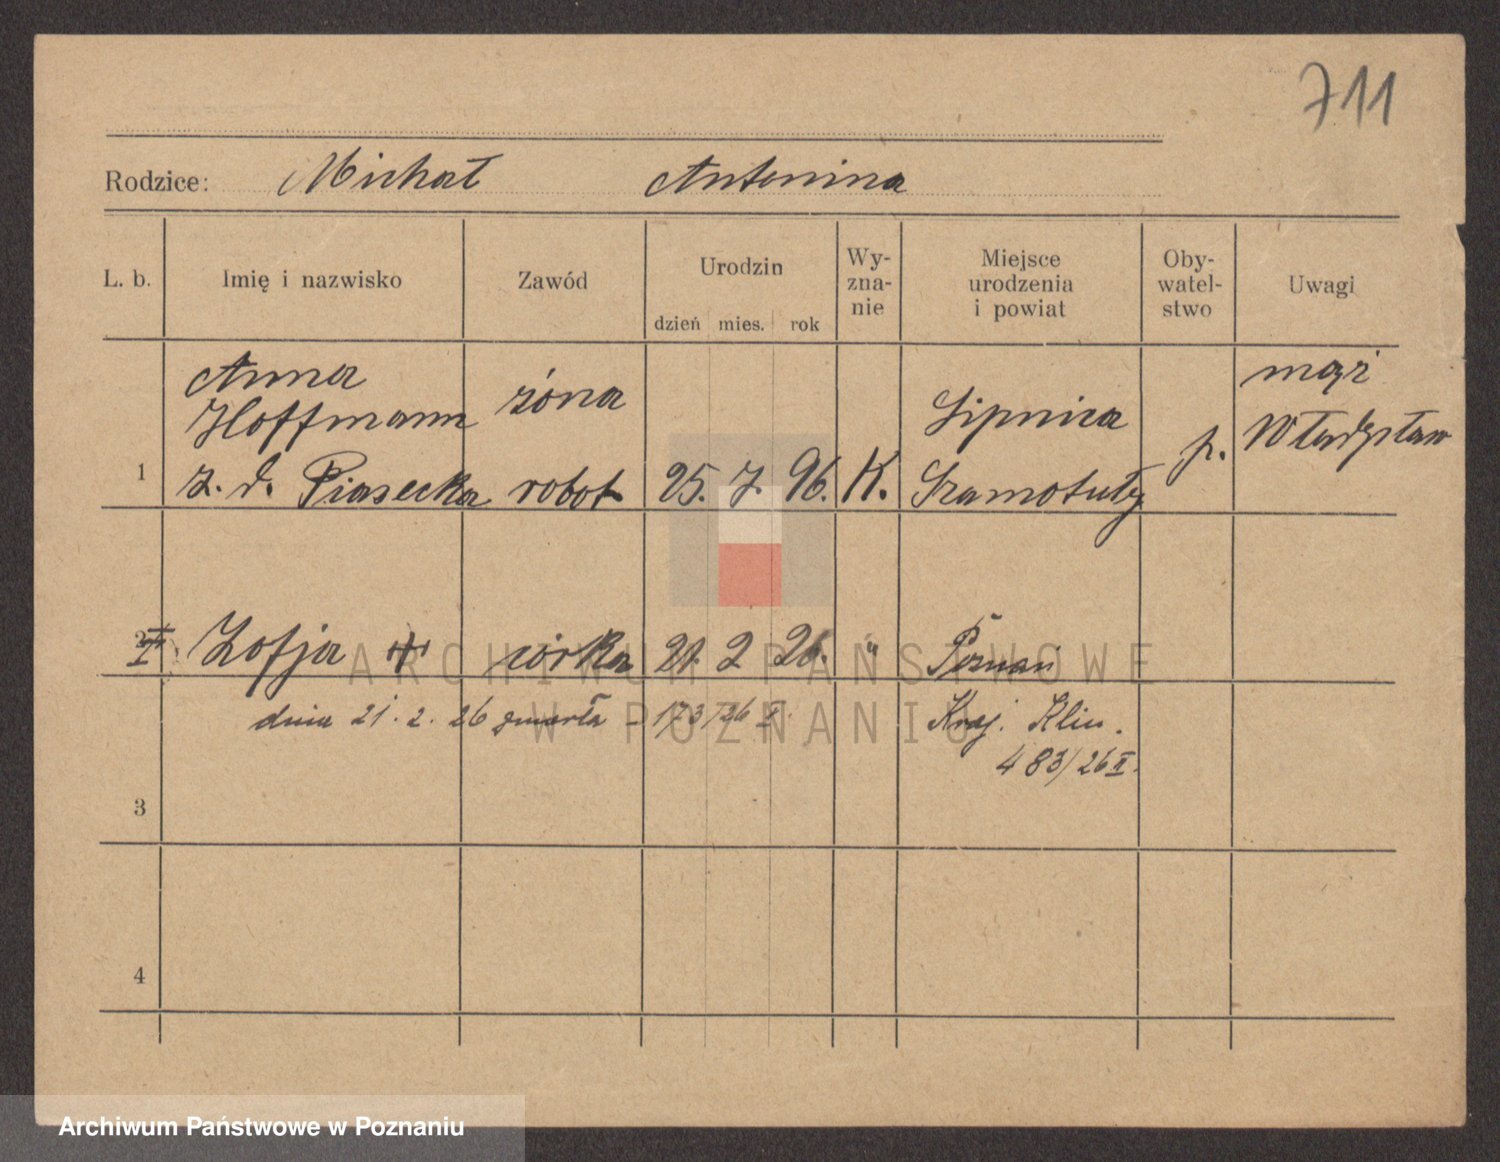 711
Rodzice: Michał Antonina
L. b. Imię i nazwisko Zawód Urodzin dzień mies. rok Wy-zna-nie Miejsce urodzenia i powiat Oby-watel-stwo Uwagi
Anna żona mąż
Hoffmann Lipnica p. Władysław
1 z. d. Piasecka robot 25. 7. 96. K. Szamotuły
2 Zofja córka 21. 2 26. " Poznań
dnia 21. 2. 26 zmarła - 173/26 I. Kraj. Klin.
483/26 II.
3
4
ARCHIWUM PAŃSTWOWE
W POZNANIU
Archiwum Państwowe w Poznaniu